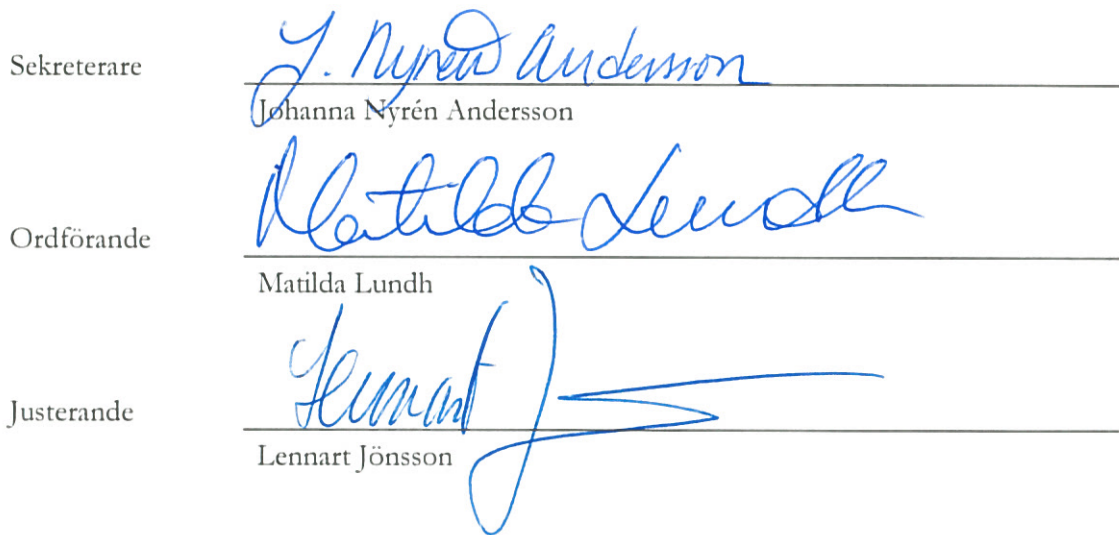 Sekreterare J. Nyrén Andersson
Johanna Nyrén Andersson
Ordförande Matilda Lundh
Matilda Lundh
Justerande Lennart J
Lennart Jönsson